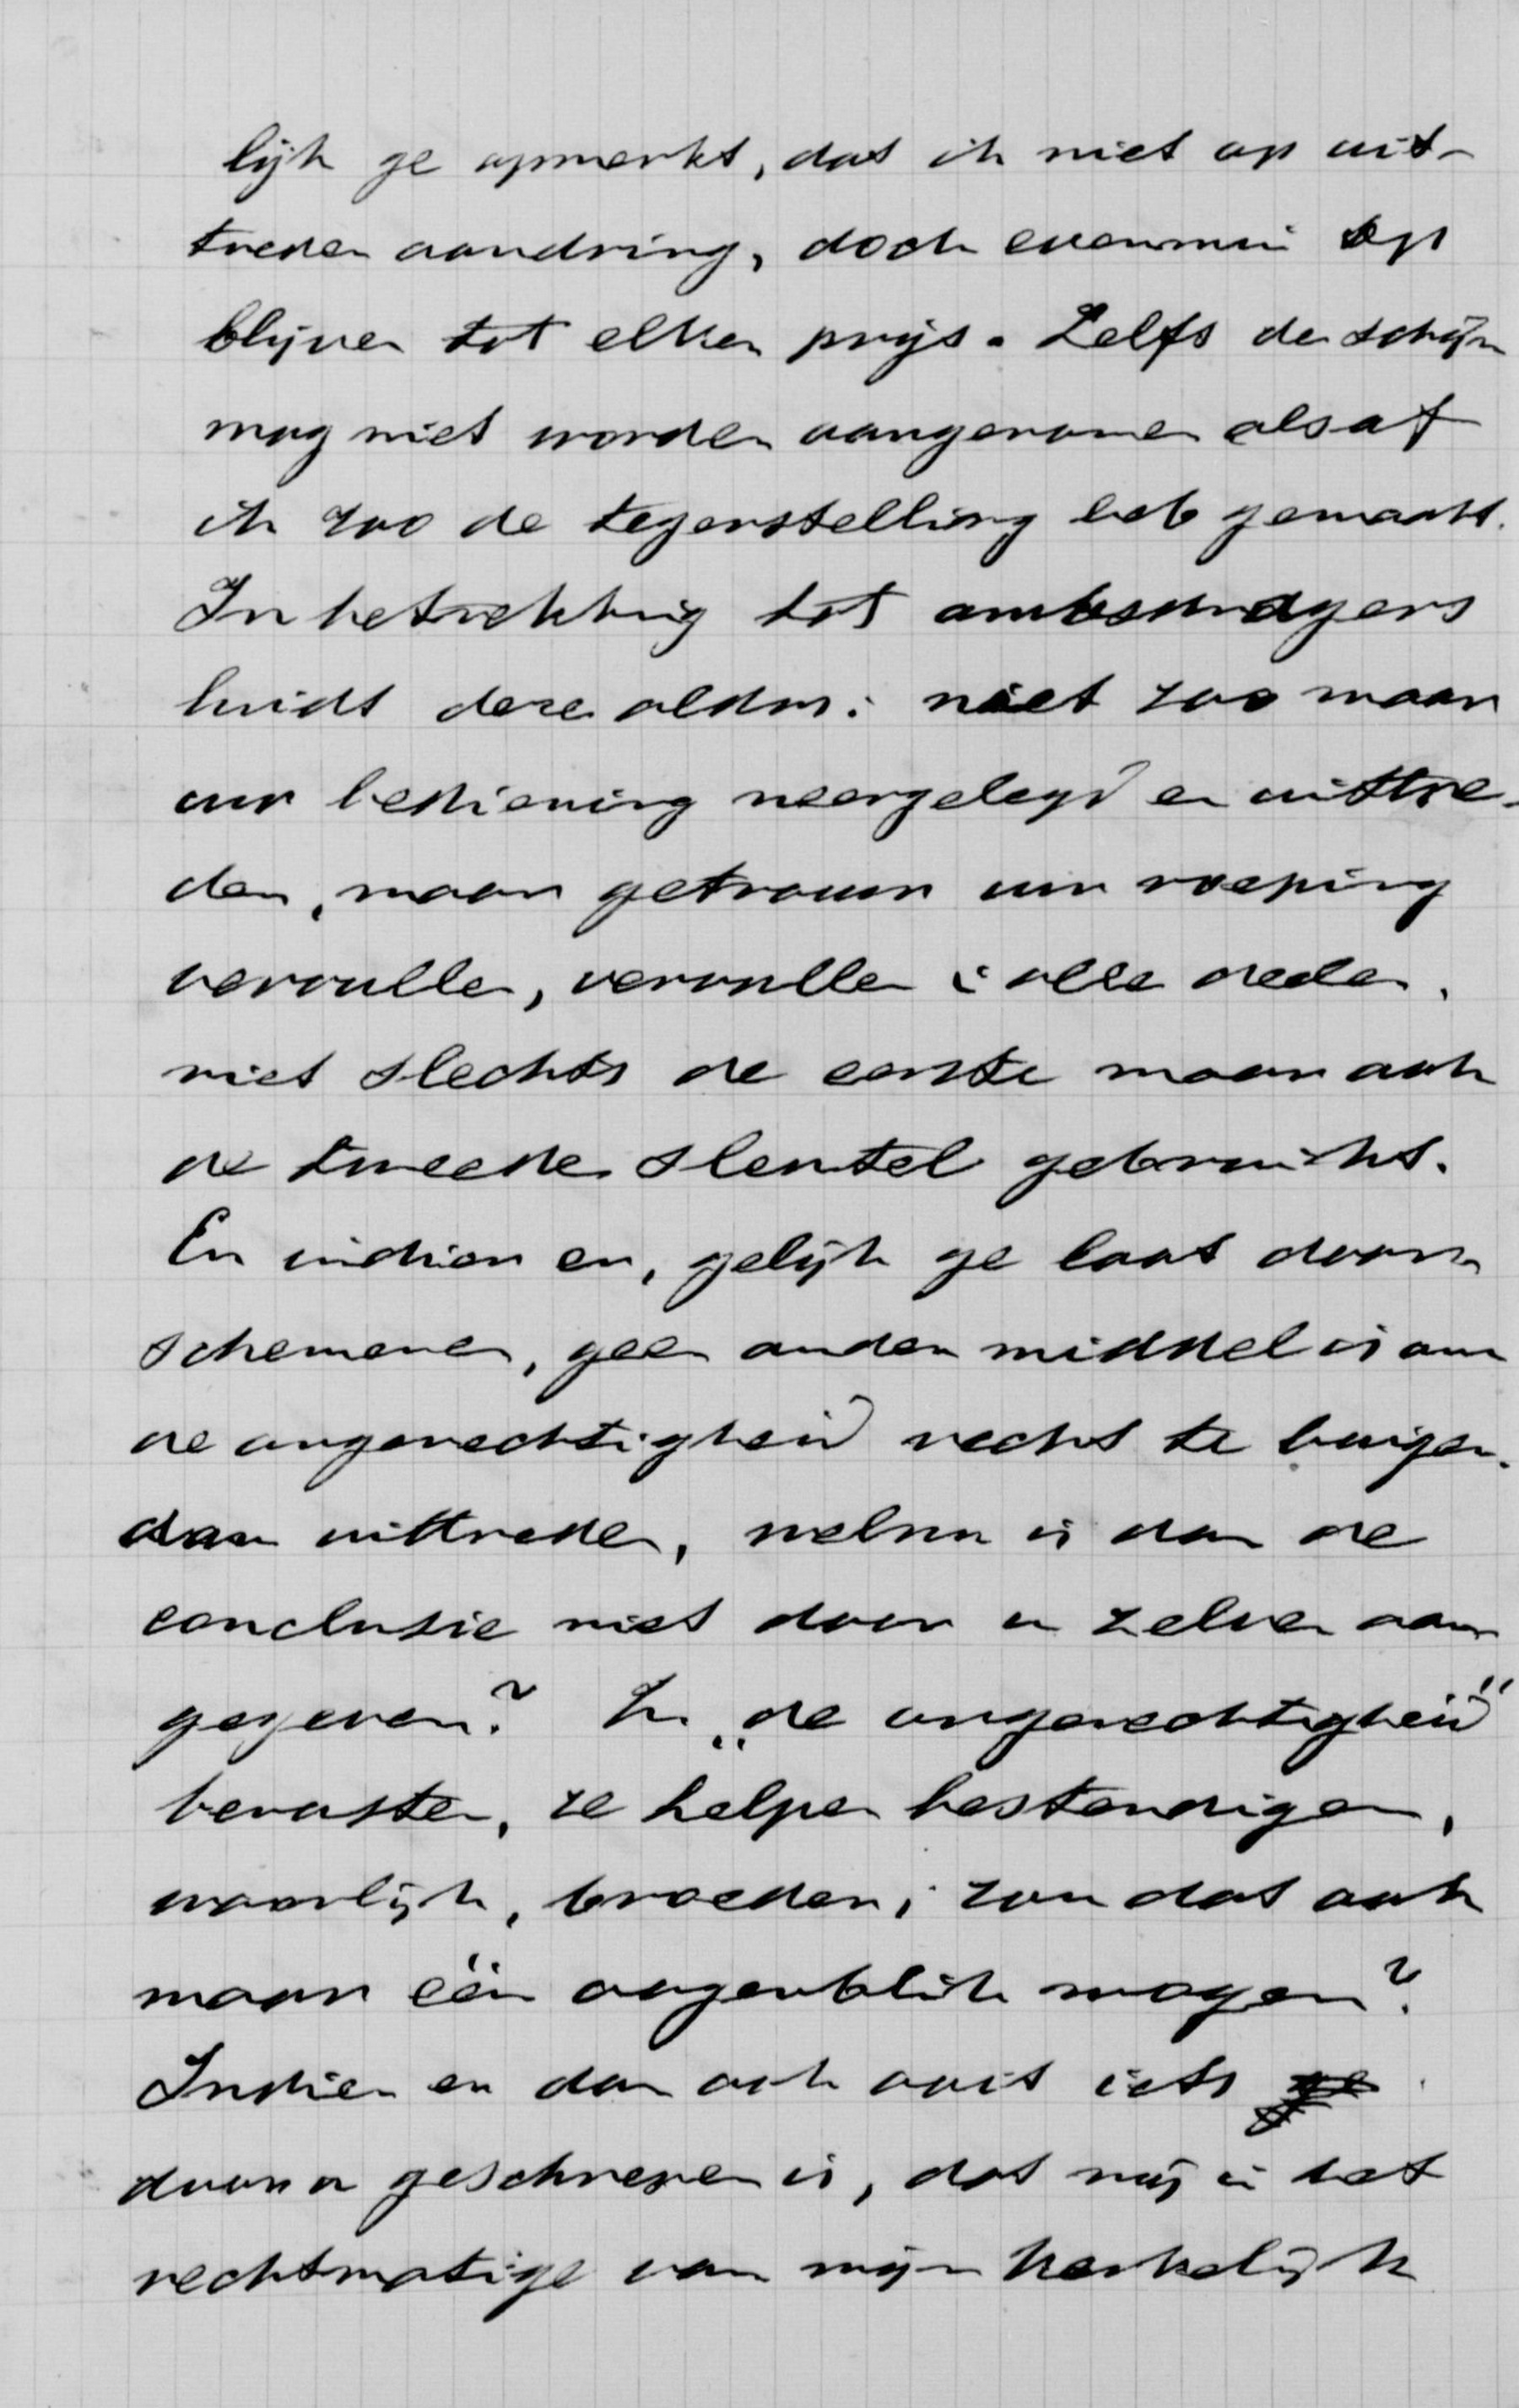 lijk ge opmerkt, dat ik niet op uit-
treden aandring, doch evenmin op
blijven tot elken prijs. Zelfs de schijn
mag niet worden aangenomen alsof
ik zoo de tegenstelling heb gemaakt.
In betrekking tot ambtsdragers
luidt deze aldus: niet zoo maar
uw bediening neergelegd en uittre-
den, maar getrouw uw roeping
vervullen, vervullen in alle deelen,
niet slechts de eerste maar ook
de tweede sleutel gebruikt.
En indien er, gelijk ge laat door-
schemeren, geen ander middel is om
de ongerechtigheid recht te buigen
dan uittreden, welnu is dan de
conclusie niet door u zelven aan
gegeven? In „de ongerechtigheid"
berusten, ze helpen bestendigen,
waarlijk, broeder, zou dat ook
maar één oogenblik mogen?
Indien er dan ook ooit iets
door u geschreven is, dat mij in het
rechtmatige van mijn kerkelijk